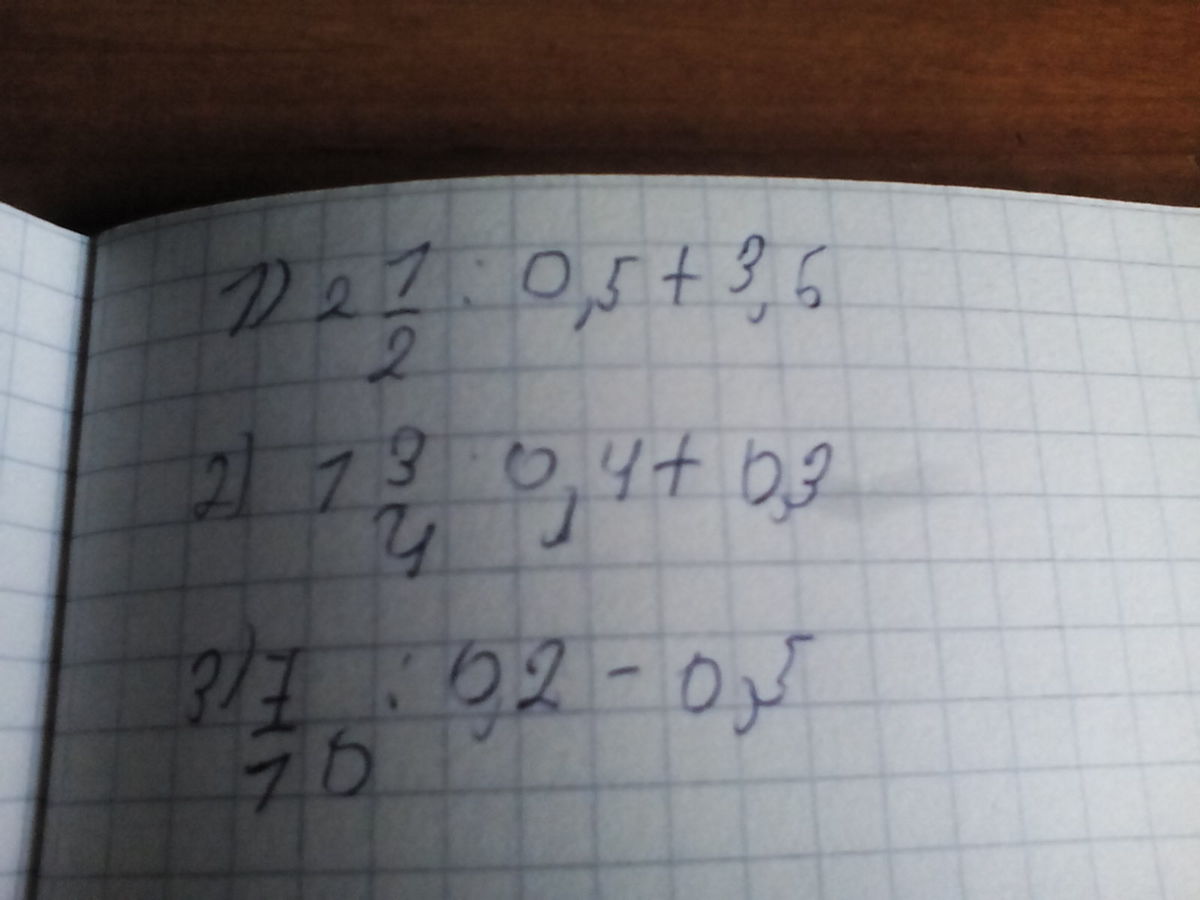 1) 2 1/2 : 0,5 + 3,6
2) 1 3/4 · 0,4 + 0,3
3) 7/10 : 0,2 - 0,5